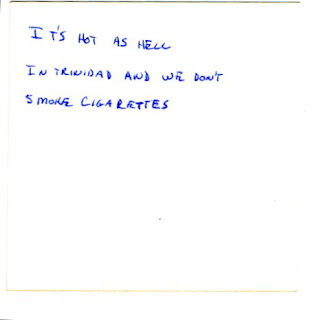 IT'S HOT AS HELL
IN TRINIDAD AND WE DON'T
SMOKE CIGARETTES